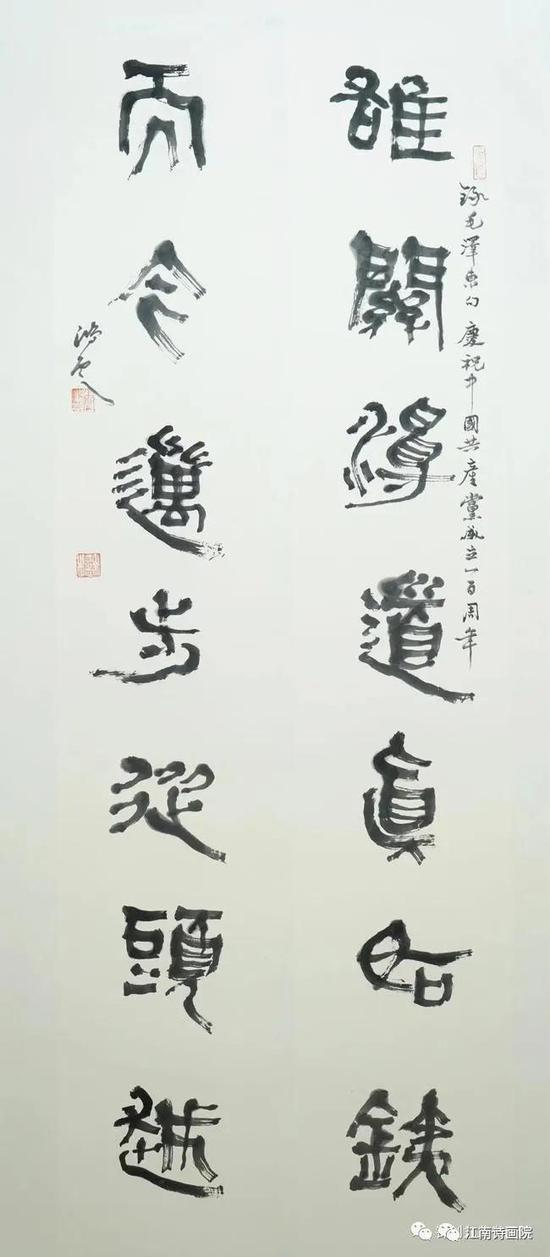 錄毛澤東句 慶祝中國共產黨成立一百周年
雄關漫道眞如銕
而今邁步從頭越
江南诗画院